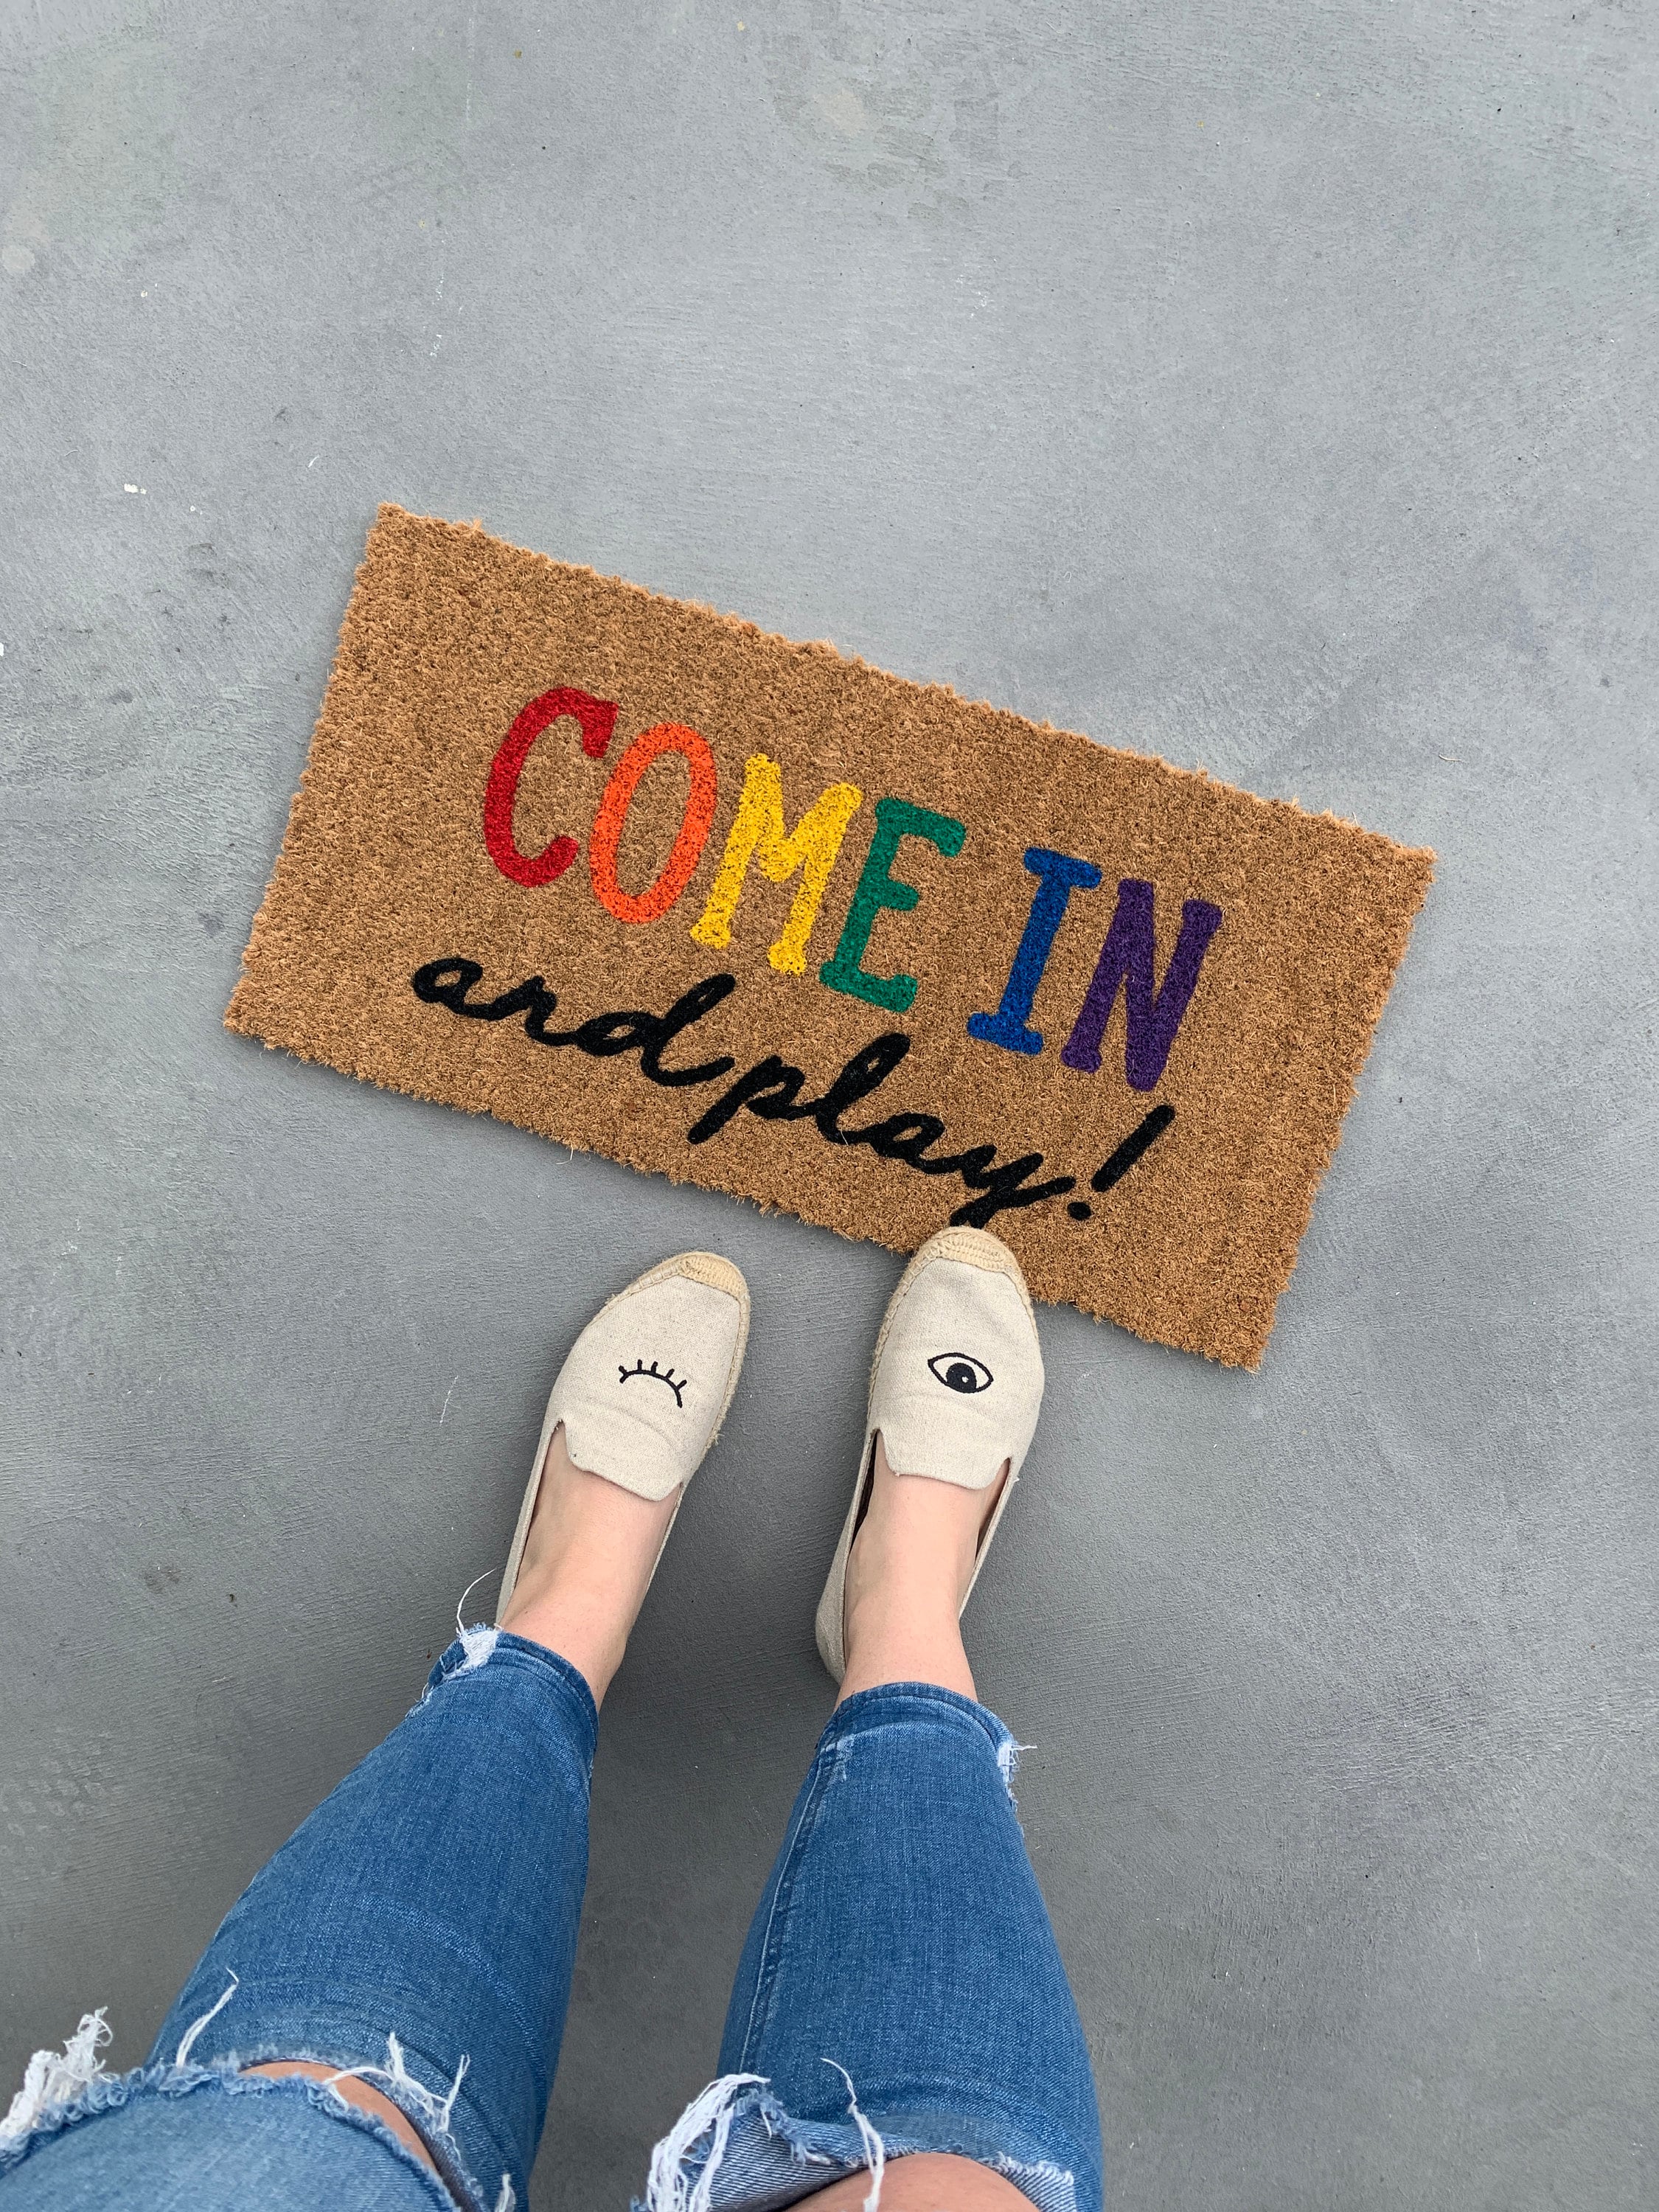 COME IN
and play!